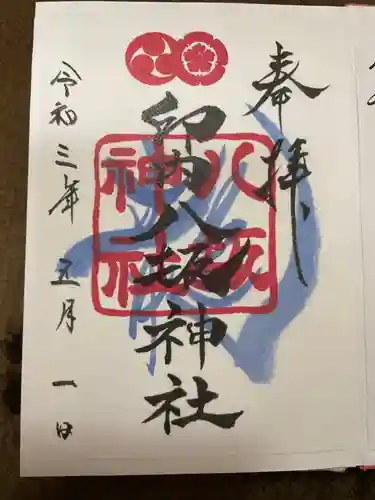 奉拝
印内八坂神社
八坂
神社
令和三年五月一日